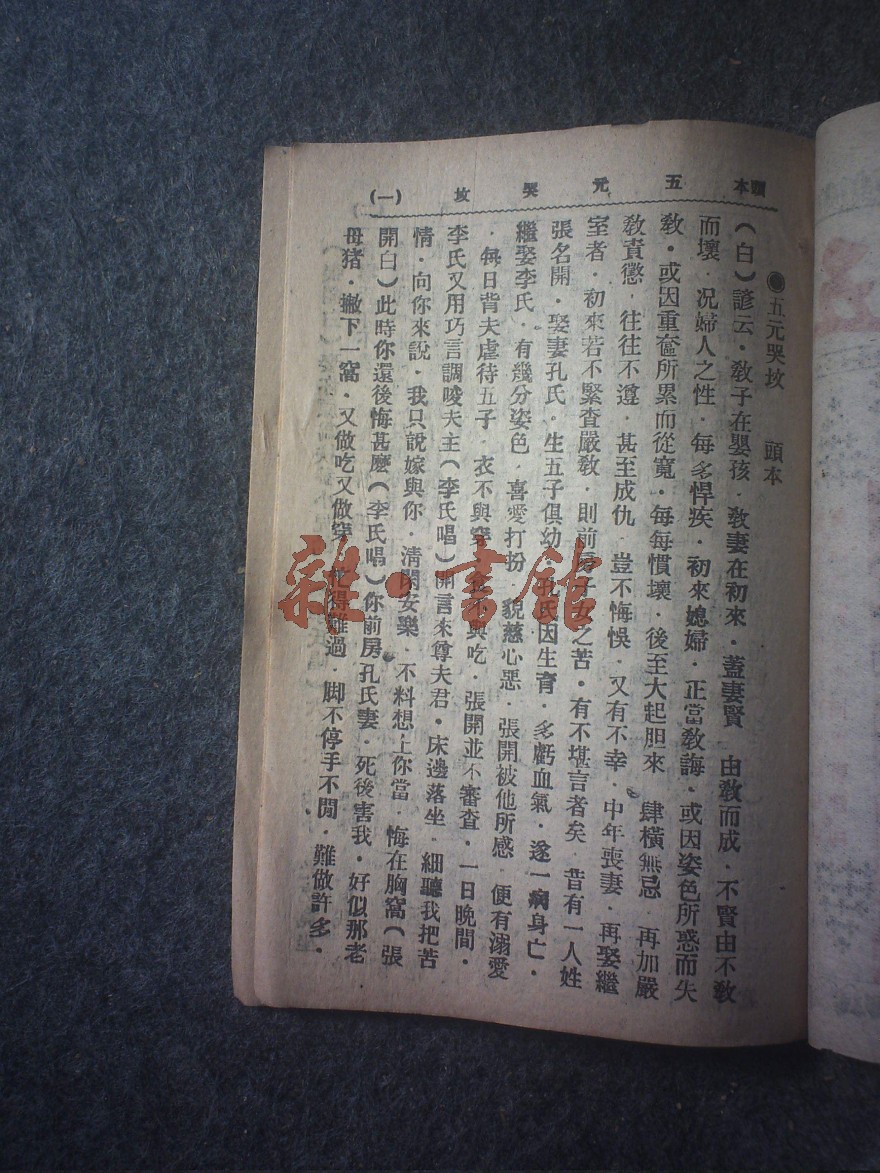 頭本　五元哭坟　(一)
●五元哭坟　頭本
(白)諺云．敎子在嬰孩．敎妻在初來．蓋妻賢　由敎而成．不賢由不敎
而壞．况婦人之性．每多悍疾．初來媳婦．正當敎誨．或因姿色所惑而失
敎．或因重奩所累而從寬．每每慣壞．後至大起胆來　肆橫無忌　再加嚴
敎責懲．往往不遵．甚至成仇．豈不悔悞．又有不幸．中年喪妻．再娶繼
室者．初來若不緊查嚴敎．則前房子女之苦．有不堪言者矣．昔有一人姓
張名開．娶妻孔氏．生五子俱幼．孔氏因生育．多虧血氣．遂一病身亡．
繼娶李氏．有幾分姿色．喜愛打扮．貌慈心惡．張開被他所感．便有溺愛
．每日背夫虐待五子．衣不與穿．食不與吃．張開並不審查．一日晚間．
李氏又用巧言調唆夫主(李氏唱)開言來尊夫君．床邊落坐．細聽我把苦
情．向你來說．我只說嫁與你．清閑安樂．不料想上你當．悔在胸窩(張
開白)此時你還後悔甚麽(李氏唱)你前房孔氏妻．死後害我．好似那老
母猪．撇下一窩．又做吃又做穿．忙得難過　脚不停手不閒．難做許多．
雜·書館